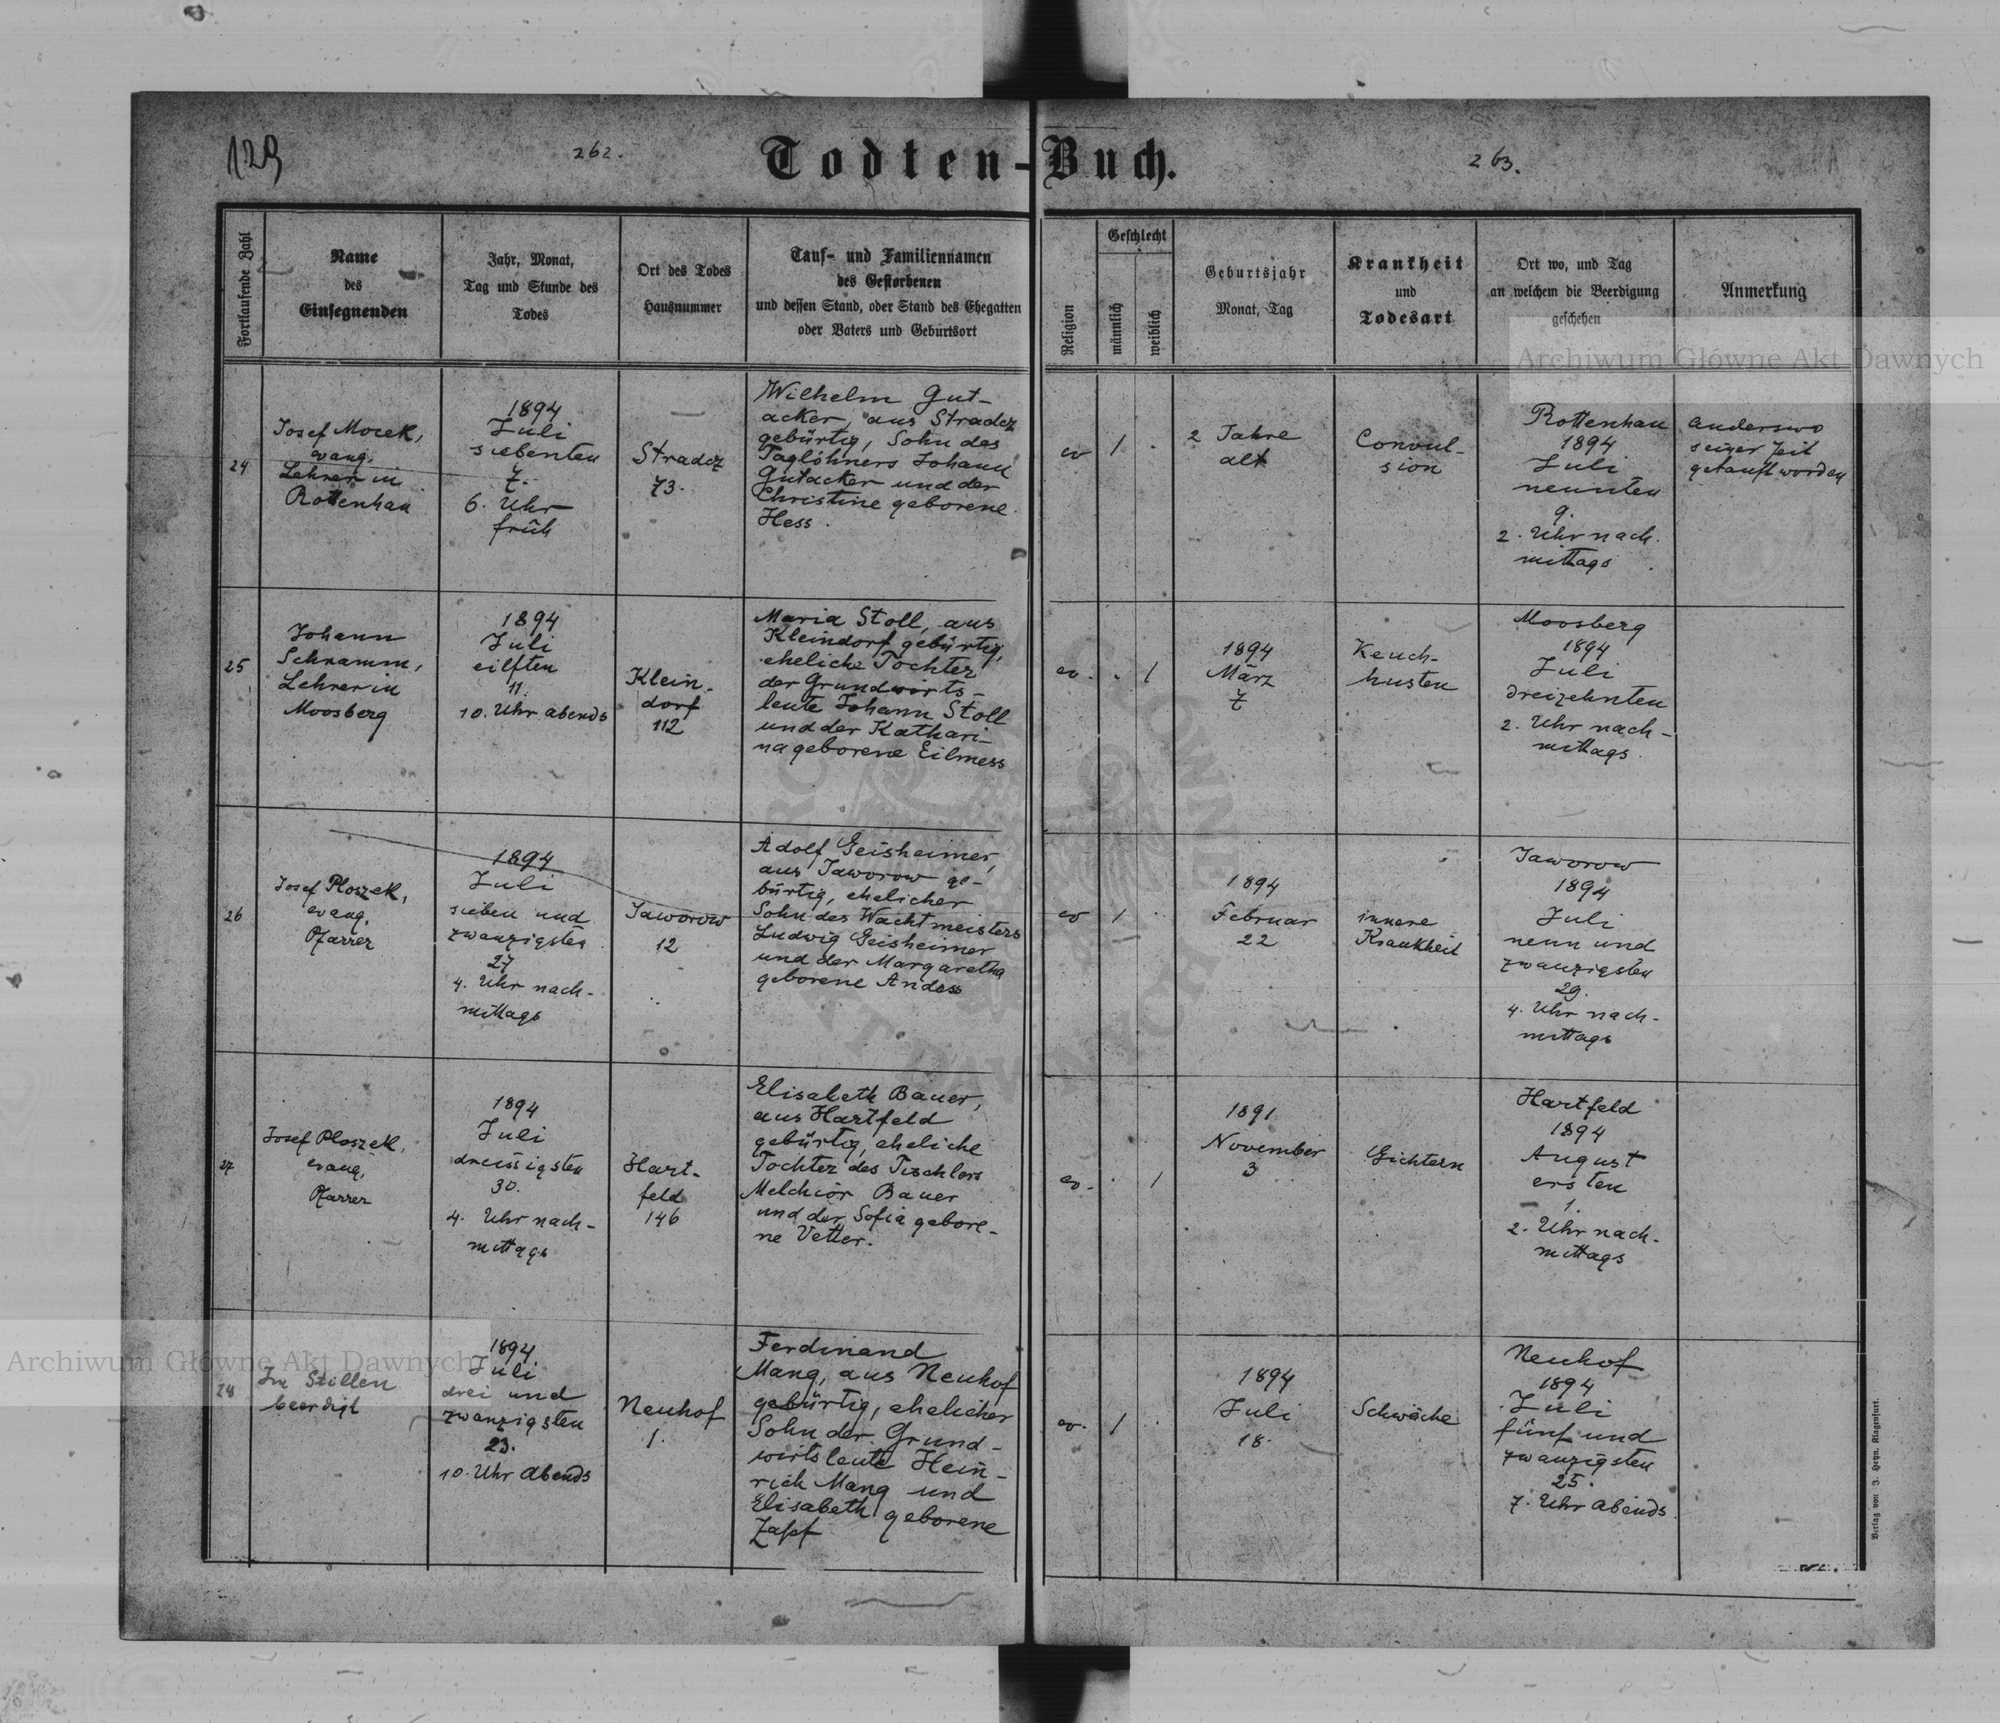 129
262.
Todten-Buch.
263.
Fortlaufende Zahl
Name
des
Einsegnenden
Jahr, Monat,
Tag und Stunde des
Todes
Ort des Todes
Hausnummer
Tauf- und Familiennamen
des Gestorbenen
und dessen Stand, oder Stand des Ehegatten
oder Vaters und Geburtsort
Religion
Geschlecht
männlich
weiblich
Geburtsjahr
Monat, Tag
Krankheit
und
Todesart
Ort wo, und Tag
an welchem die Beerdigung
geschehen
Anmerkung
Archiwum Główne Akt Dawnych
24
Josef Mocek,
evang.
Lehrer in
Rottenhan
1894
Juli
siebenten
7.
6. Uhr
früh
Stradcz
73.
Wilhelm Gut-
acker, aus Stradcz
gebürtig, Sohn des
Taglöhners Johann
Gutacker und der
Christine geborene
Hess.
ev
1
.
2 Jahre
alt
Convul-
sion
Rottenhan
1894
Juli
neunten
9.
2. Uhr nach.
mittags
anderswo
seiner Zeit
getauft worden
25
Johann
Schramm,
Lehrer in
Moosberg
1894
Juli
eilften
11.
10. Uhr abends
Klein.
dorf
112
Maria Stoll, aus
Kleindorf gebürtig,
eheliche Tochter
der Grundwirts-
leute Johann Stoll
und der Kathari-
na geborene Eilmess
ev.
.
1
1894
März
7
Keuch-
husten
Moosberg
1894
Juli
dreizehnten
2. Uhr nach-
mittags
26
Josef Ploszek,
evang.
Pfarrer
1894
Juli
sieben und
zwanzigsten
27
4. Uhr nach-
mittags
Jaworow
12
Adolf Geisheimer,
aus Jaworow ge-
bürtig, ehelicher
Sohn des Wachtmeisters
Ludwig Geisheimer
und der Margaretha
geborene Andess
ev
1
.
1894
Februar
22
innere
Krankheit
Jaworow
1894
Juli
neun und
zwanzigsten
29.
4. Uhr nach-
mittags
27
Josef Ploszek,
evang.
Pfarrer
1894
Juli
dreissigsten
30.
4. Uhr nach-
mittags
Hart-
feld
146
Elisabeth Bauer,
aus Hartfeld
gebürtig, eheliche
Tochter des Tischlers
Melchior Bauer
und der Sofia gebore-
ne Vetter.
ev.
.
1
1891
November
3
Gichtern
Hartfeld
1894
August
ersten
1.
2. Uhr nach-
mittags
Archiwum Główne Akt Dawnych
28
Im Stillen
beerdigt
1894
Juli
drei und
zwanzigsten
23.
10. Uhr abends
Neuhof
1.
Ferdinand
Mang, aus Neuhof
gebürtig, ehelicher
Sohn der Grund-
wirtsleute Hein-
rich Mang und
Elisabeth geborene
Zapf
ev.
1
.
1894
Juli
18.
Schwäche
Neuhof
1894
Juli
fünf und
zwanzigsten
25.
7. Uhr abends
Verlag von J. Heyn, Klagenfurt.